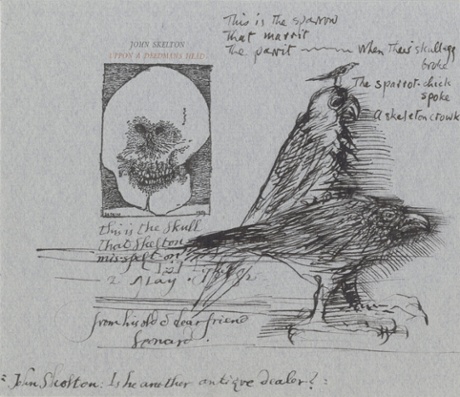 This is the sparrow
That marrit
The parrit
When their skull egg
broke
The sparrot-chick
spoke
A skeleton crowk
JOHN SKELTON
UPON A DEEDMANS HED
this is the skull
that Skelton
misspelt on
2 May
from his old & dear friend
John Skelton: Is he another antique dealer?